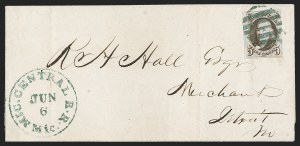 R H Hall Esqr
Merchant
Detroit
M
MIC. CENTRAL R.R.
JUN
6
Mic.
5